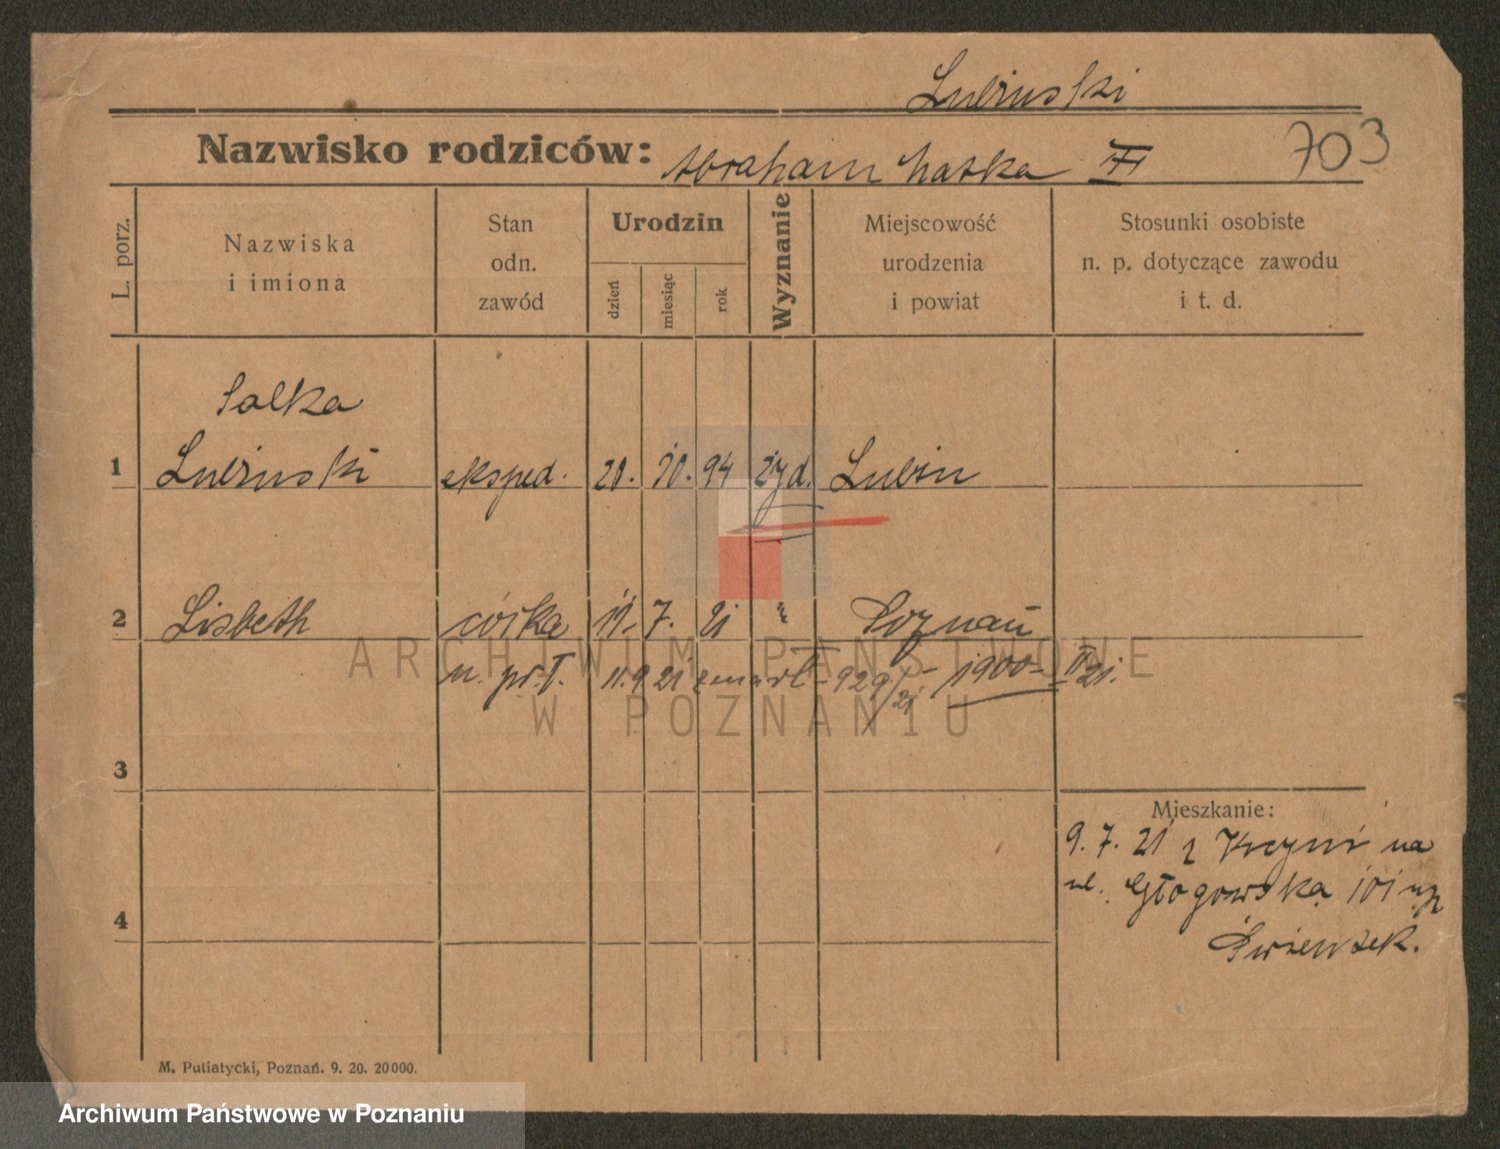 Lubinski
Nazwisko rodziców: Abraham Natka 703
L. porz.
Nazwiska
i imiona
Stan
odn.
zawód
Urodzin
dzień
miesiąc
rok
Wyznanie
Miejscowość
urodzenia
i powiat
Stosunki osobiste
n. p. dotyczące zawodu
i t. d.
Salka
1 Lubinski eksped. 20. 10. 94 żyd. Lubin
2 Lisbeth córka 11. 7. 21 " Poznań
11.9 21 zmarł 929/21 1900 II 21.
3
4
Mieszkanie:
9. 7. 21 z Kcyni na
ul. Głogowska 101
M. Putiatycki, Poznań. 9. 20. 20000.
ARCHIWUM PAŃSTWOWE
W POZNANIU
Archiwum Państwowe w Poznaniu